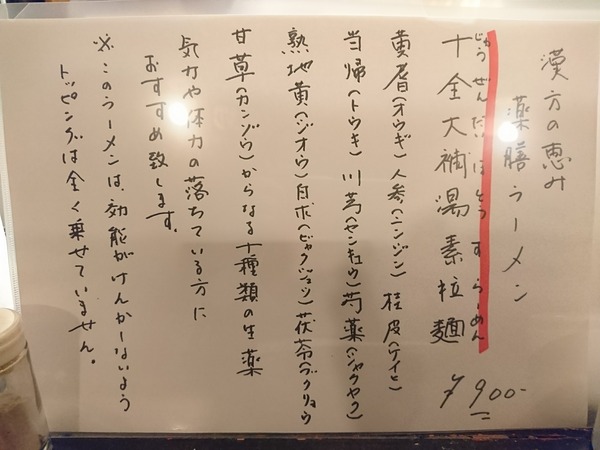 漢方の恵み
薬膳ラーメン
じゅうぜんだいほとうすらーめん
十全大補湯素拉麺
¥900-
黄耆(オウギ)人参(ニンジン)桂皮(ケイヒ)
当帰(トウキ)川芎(センキュウ)芍薬(シャクヤク)
熟地黄(ジオウ)白朮(ビャクジュツ)茯苓(ブクリョウ)
甘草(カンゾウ)からなる十種類の生薬
気力や体力の落ちている方に
おすすめ致します。
※このラーメンは、効能がけんかーないよう
トッピングは全く乗せていません。